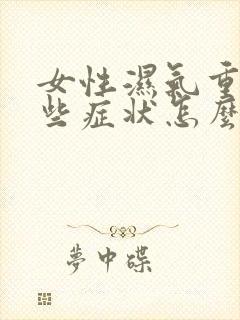 女性濕氣重
些症状怎麼
夢中碟